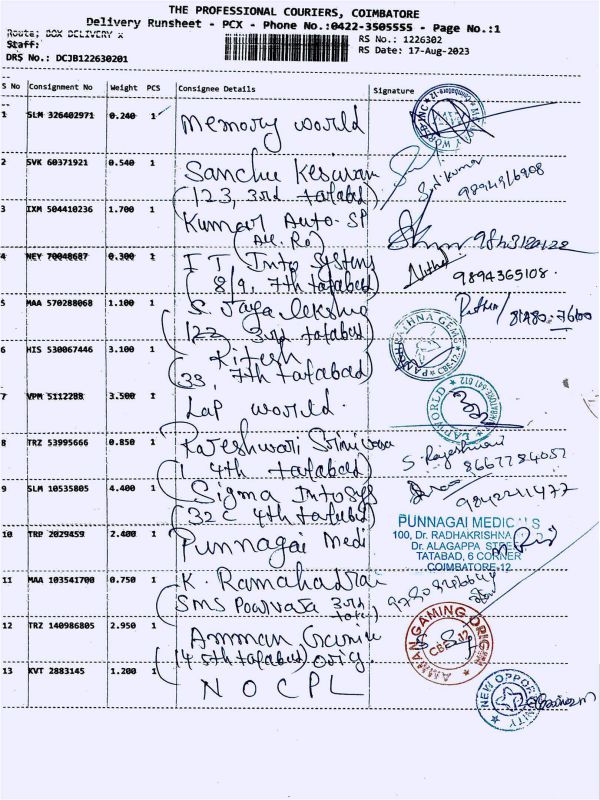 THE PROFESSIONAL COURIERS, COIMBATORE
Delivery Runsheet - PCX - Phone No.:0422-3505555 - Page No.:1
Route; BOX DELIVERY X
RS No.: 1226302
Staff:
RS Date: 17-Aug-2023
DRS No.: DCJB122630201
S No Consignment No Weight PCS Consignee Details Signature
1 SLM 326402971 0.240 1 Memory world
2 SVK 60371921 0.540 1 Sanchu Kesavan
(123, 3rd tatabad) Sri Kumar
3 IXM 504410236 1.700 1 Kumar Auto-SP
4 NEY 70048687 0.300 1 IT Into Systems
(8/9, 7th tatabad) Nithd 9894365108.
5 MAA 570288068 1.100 1 S. Jaya
(122, 3rd tatabad)
6 HIS 530067446 3.100 1 Ritesh
(33, 7th tatabad)
7 VPM 5112288 3.500 1 Lap world.
LAP WORLD
8 TRZ 53995666 0.850 1 Rajeshwari Srinivasa
(1 4th tatabad) S. Rajeshwari
8667784057
9 SLM 10535805 4.400 1 Sigma Infosys
(32 C 4th tatabad) 9842211477
10 TRP 2029459 2.400 1 Punnagai Medi
PUNNAGAI MEDICALS
100, Dr. RADHAKRISHNA
Dr. ALAGAPPA STREET
TATABAD, 6 CORNER
COIMBATORE-12.
11 MAA 103541700 0.750 1 K. Ramahadrai
(SMS 3rd
12 TRZ 140986805 2.950 1 Amman Gaming
(14 5th tatabad) Orig.
AMMAN GAMING ORIG
CBE-12
13 KVT 2883145 1.200 1 N O C P L
NEW OPPORTUNITY